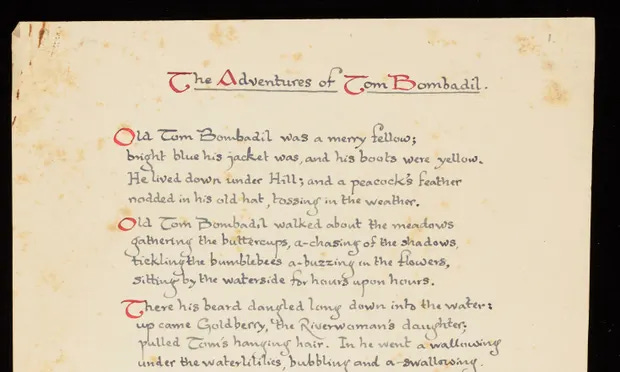 The Adventures of Tom Bombadil.
Old Tom Bombadil was a merry fellow;
bright blue his jacket was, and his boots were yellow.
He lived down under Hill; and a peacock's feather
nodded in his old hat, tossing in the weather.
Old Tom Bombadil walked about the meadows
gathering the buttercups, a-chasing of the shadows,
tickling the bumblebees a-buzzing in the flowers,
sitting by the waterside for hours upon hours.
There his beard dangled long down into the water:
up came Goldberry, the Riverwoman's daughter;
pulled Tom's hanging hair. In he went a wallowing
under the waterlilies, bubbling and a-swallowing.